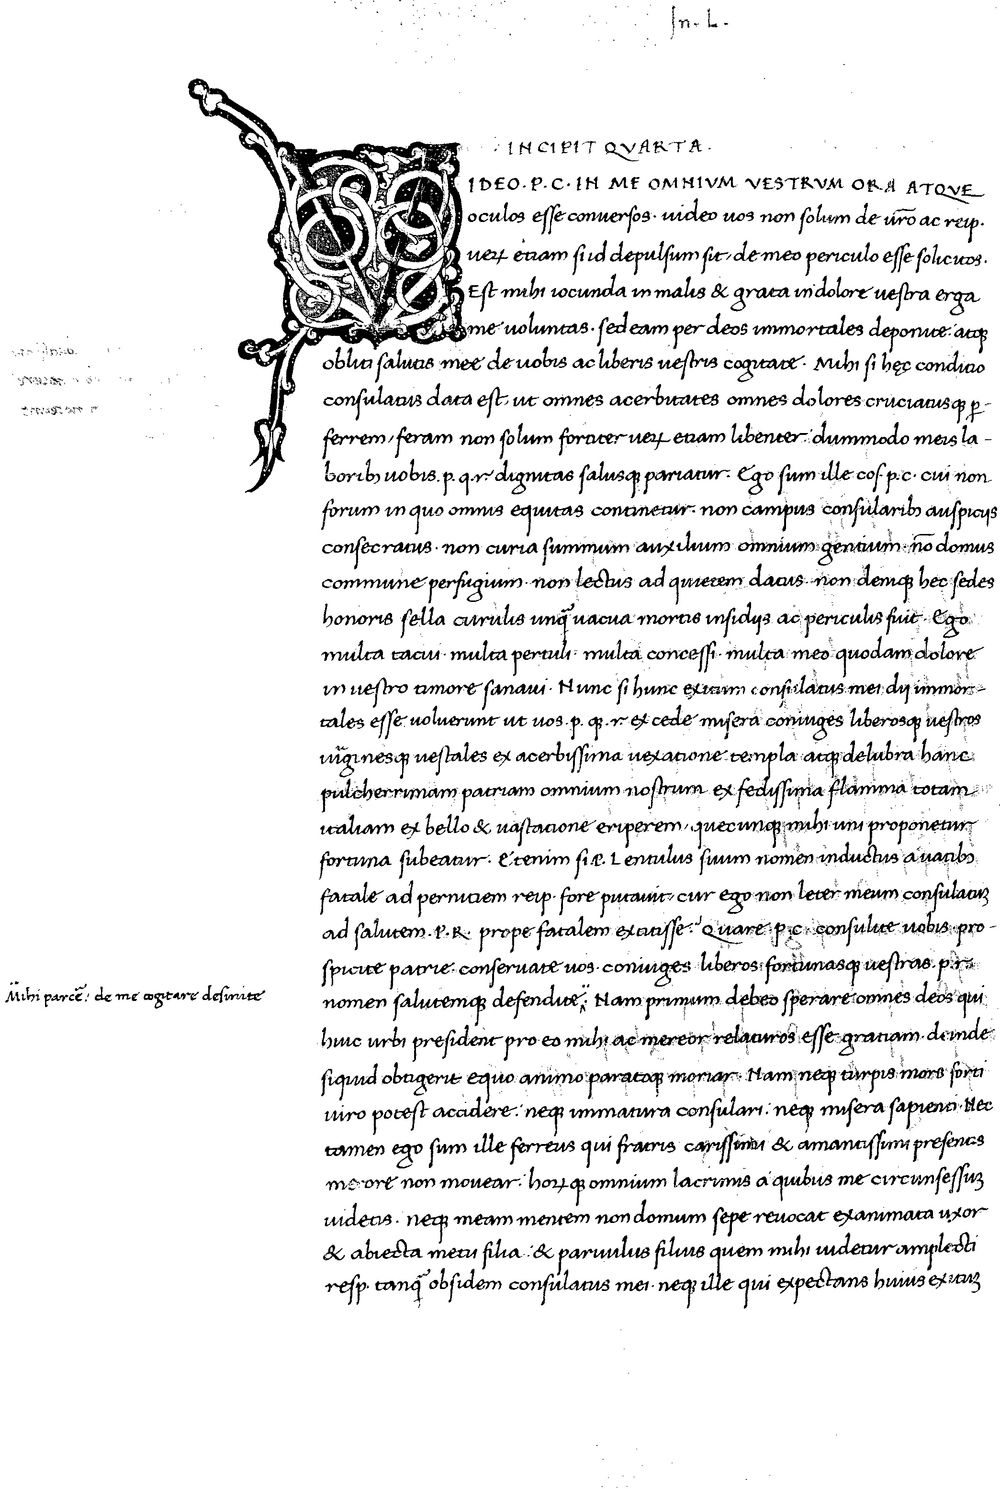 In. L.
INCIPIT QVARTA.
VIDEO. P. C. IN ME OMNIVM VESTRVM ORA ATQVE
oculos esse conuersos. uideo uos non solum de ur̄o ac reip.
ueꝝ etiam si id depulsum sit, de meo periculo esse solicitos.
Est mihi iocunda in malis & grata in dolore uestra erga
me uoluntas. sed eam per deos immortales deponite. atqꝫ
obliti salutis meę de uobis ac liberis uestris cogitate. Mihi si hęc conditio
consulatus data est, ut omnes acerbitates omnes dolores cruciatusqꝫ p̲-
ferrem, feram non solum fortiter ueꝝ etiam libenter. dummodo meis la-
boribꝫ uobis. p. q. r. dignitas salusqꝫ pariatur. Ego sum ille cos. p. c. cui non
forum in quo omnis equitas continetur. non campus consularibꝫ auspicijs
consecratus. non curia summum auxilium omnium gentium. nō domus
commune perfugium. non lectus ad quietem datus. non deniqꝫ hec sedes
honoris sella curulis unq̄ uacua mortis insidijs ac periculis fuit. Ego
multa tacui. multa pertuli. multa concessi. multa meo quodam dolore
in uestro timore sanaui. Nunc si hunc exitum consulatus mei dij immor-
tales esse uoluerunt ut uos. p. qꝫ. r. ex cede misera coniuges liberosqꝫ uestros
uirginesqꝫ uestales ex acerbissima uexatione templa atqꝫ delubra hanc
pulcherrimam patriam omnium nostrum ex fedissima flamma totam
italiam ex bello & uastatione eriperem, quecunqꝫ mihi uni proponetur
fortuna subeatur. Etenim si P. Lentulus suum nomen inductus a uatibꝫ
fatale ad pernitiem reip. fore putauit, cur ego non leter meum consulatuꝫ
ad salutem. P. R. prope fatalem extitisse. Quare. p. c. consulite uobis. pro-
spicite patrie. conseruate uos. coniuges liberos fortunasqꝫ uestras. p. r.
nomen salutemqꝫ defendite. Nam primum debeo sperare omnes deos qui
Mihi parcē: de me cogitare desinite
huic urbi president pro eo mihi ac mereor relaturos esse gratiam. deinde
siquid obtigerit equo animo paratoqꝫ moriar. Nam neqꝫ turpis mors forti
uiro potest accidere. neqꝫ immatura consulari. neqꝫ misera sapienti. Nec
tamen ego sum ille ferreus qui fratris carissimi & amantissimi presentis
merore non mouear. hoꝝqꝫ omnium lacrimis a quibus me circunsessuꝫ
uidetis. neqꝫ meam mentem non domum sepe reuocat exanimata uxor
& abiecta metu filia. & paruulus filius quem mihi uidetur amplecti
resp. tanq̄ obsidem consulatus mei. neqꝫ ille qui expectans huius exituꝫ